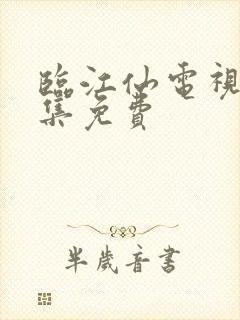 臨江仙電視
集免費
半歲音書